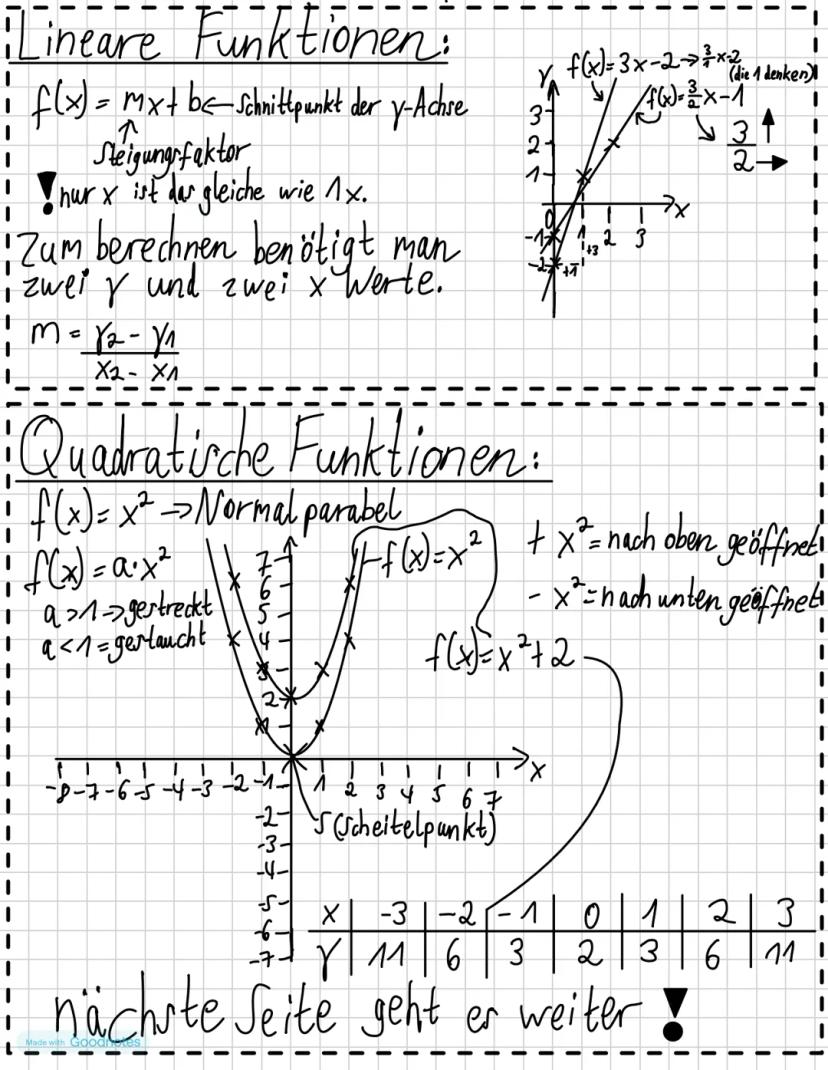 Lineare Funktionen:
f(x) = mx + b ← Schnittpunkt der y-Achse
↑
Steigungsfaktor
! nur x ist das gleiche wie 1x.
Zum berechnen benötigt man
zwei y und zwei x Werte.
m = y2 - y1
x2 - x1
y f(x) = 3x-2 → 3/1 x-2
(die 1 denken)
f(x) = 3/2 x-1
3 ↑
2 →
3
2
1
0
-1
-2
1 2 3 x
+3
+1
Quadratische Funktionen:
f(x) = x² → Normalparabel
f(x) = a·x²
a > 1 => gestreckt
a < 1 = gestaucht
f(x) = x²
+ x² = nach oben geöffnet
- x² = nach unten geöffnet
f(x) = x² + 2
7
6
5
4
3
2
1
-8 -7 -6 -5 -4 -3 -2 -1 1 2 3 4 5 6 7 x
S (Scheitelpunkt)
-2
-3
-4
-5
-6
-7
x -3 -2 -1 0 1 2 3
y 11 6 3 2 3 6 11
nächste Seite geht es weiter !
Made with Goodnotes